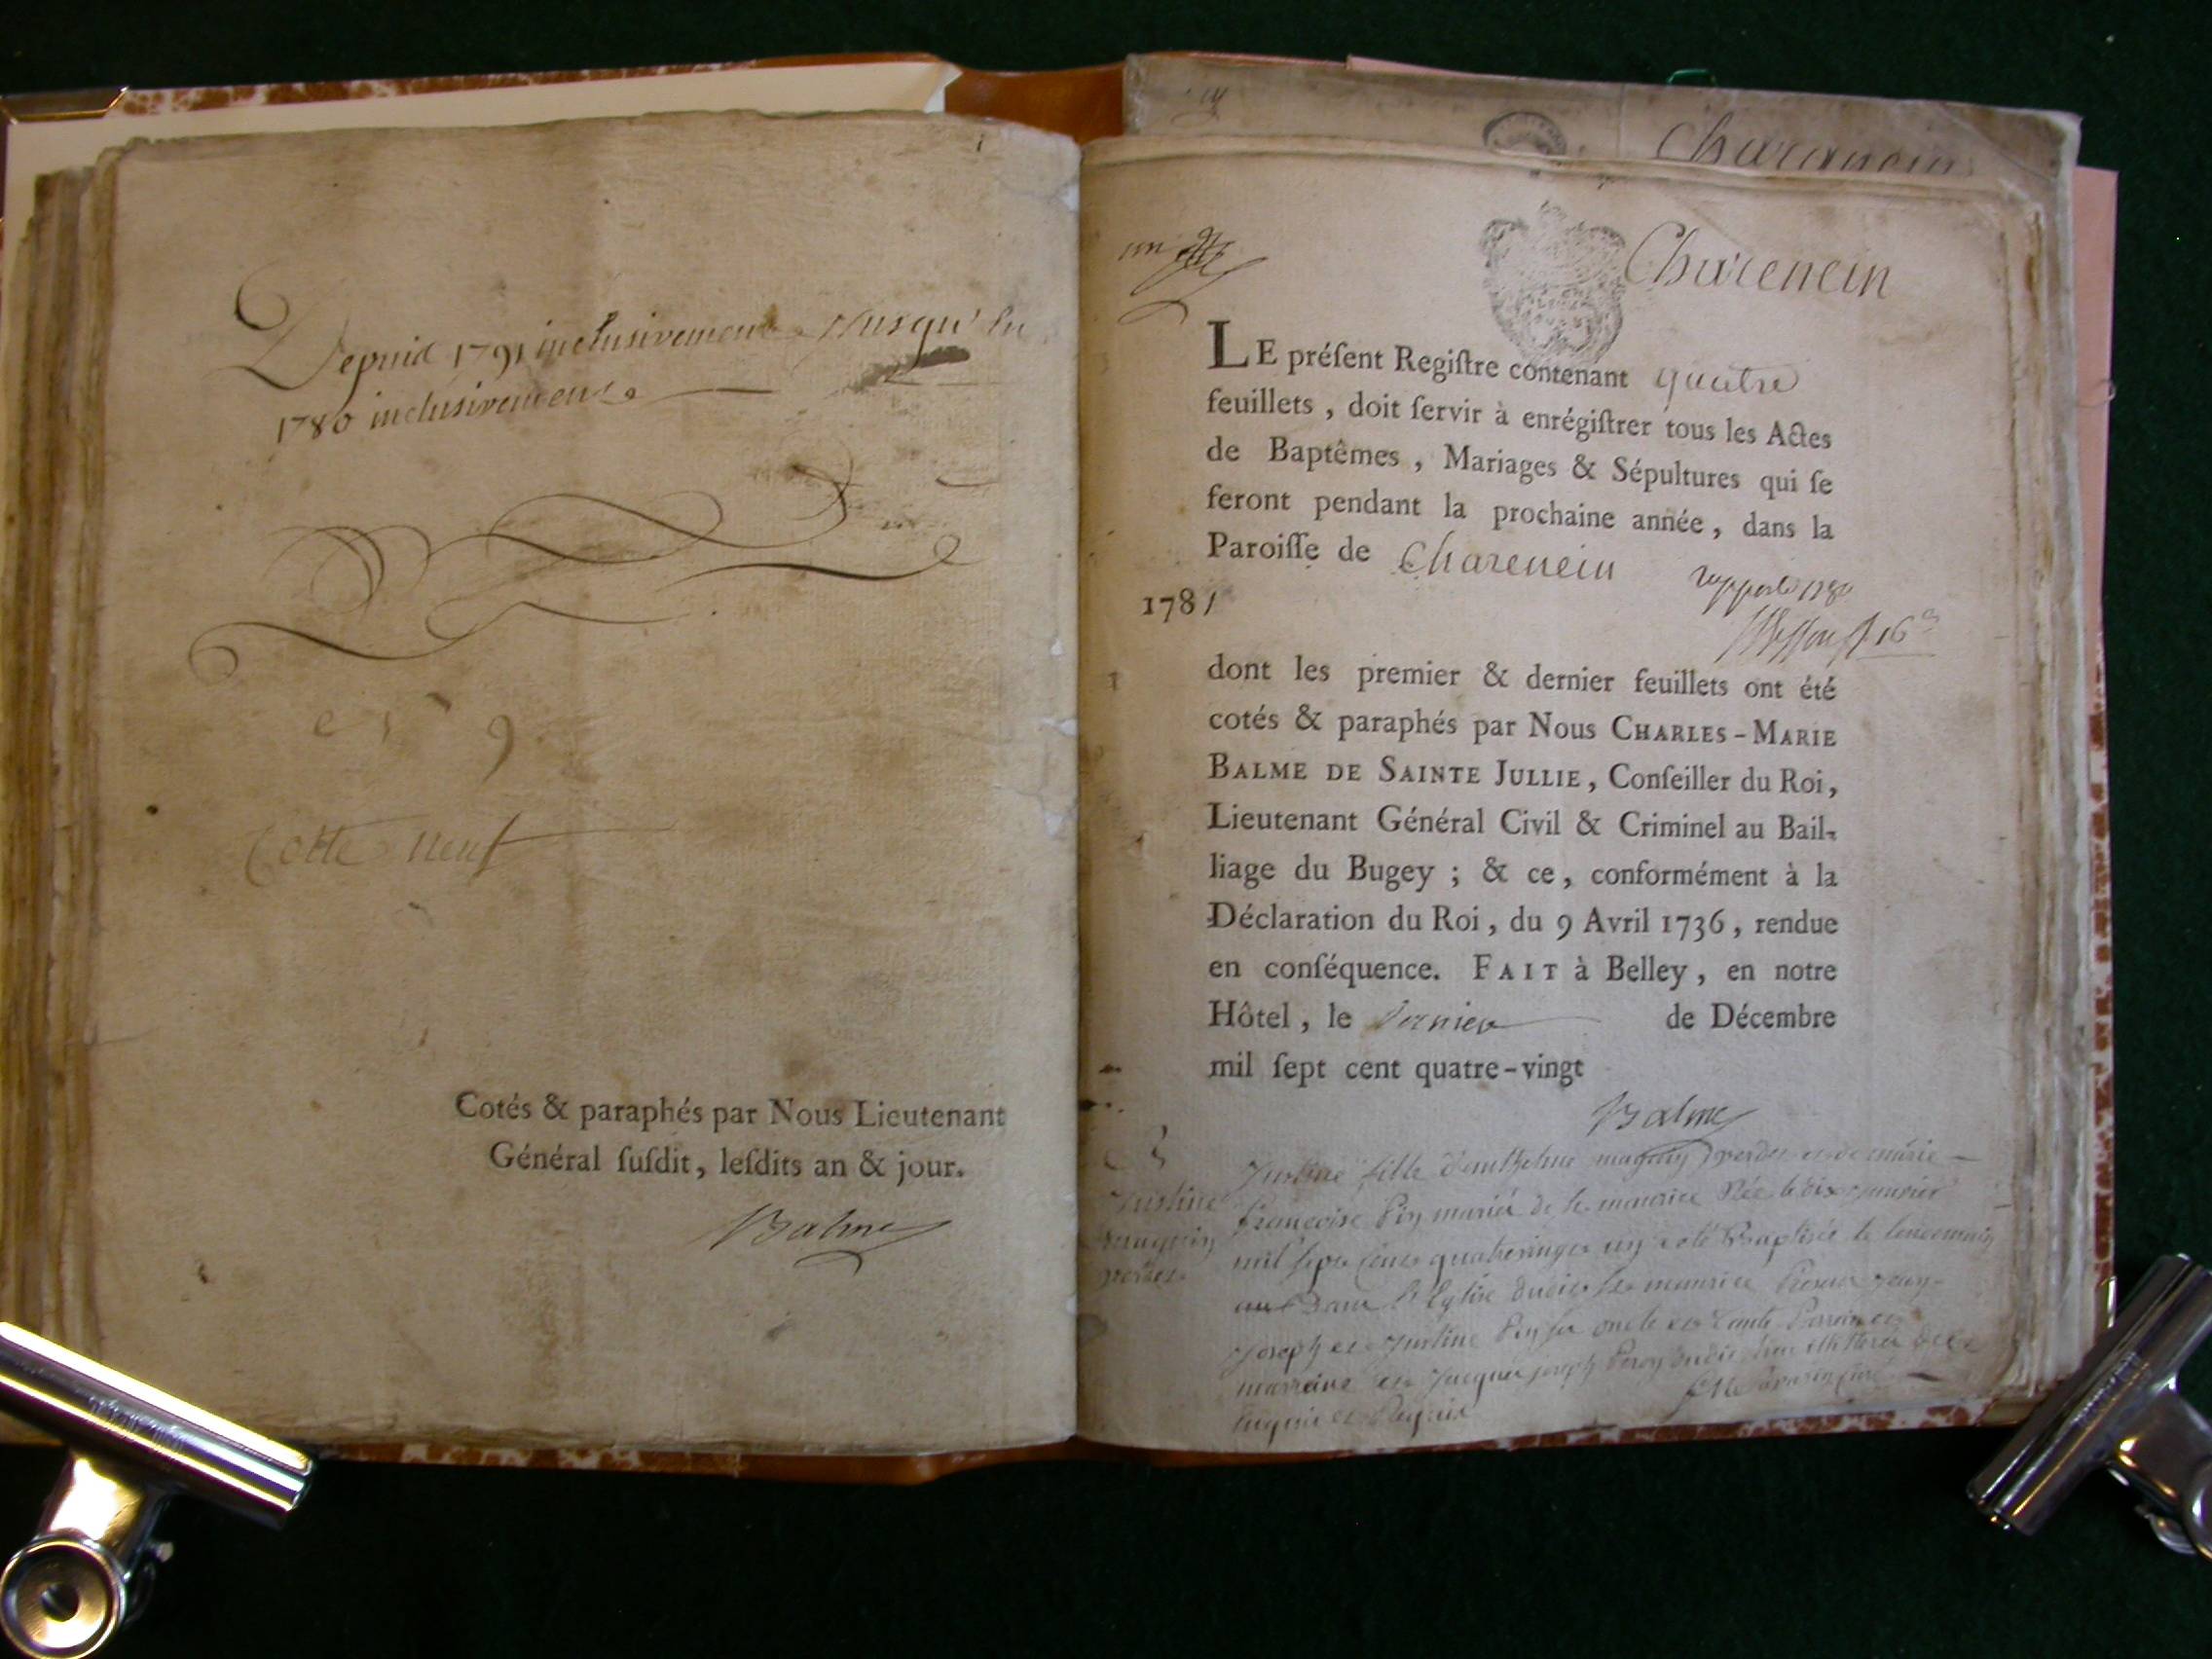 Depuid 1791 inclusivement Jusqu'en
1780 inclusivement
9
Cotte neuf
Cotés & paraphés par Nous Lieutenant
Général ſuſdit, leſdits an & jour.
Balme
Charencin
un
Charencin
LE préſent Regiſtre contenant quatre
feuillets, doit ſervir à enrégiſtrer tous les Actes
de Baptêmes, Mariages & Sépultures qui ſe
feront pendant la prochaine année, dans la
Paroiſſe de Charencin
1781
dont les premier & dernier feuillets ont été
cotés & paraphés par Nous CHARLES-MARIE
BALME DE SAINTE JULLIE, Conſeiller du Roi,
Lieutenant Général Civil & Criminel au Bail-
liage du Bugey ; & ce, conformément à la
Déclaration du Roi, du 9 Avril 1736, rendue
en conſéquence. FAIT à Belley, en notre
Hôtel, le dernier de Décembre
mil ſept cent quatre-vingt
Balme
Justine fille d'anthelme et de marie
françoise mariés de st maurice Née le dix janvier
mil sept cent quatrevingt un a été Baptisée le lendemain
dans l'Eglise dudit st maurice
joseph et justine oncle et tante Parrain et
marraine et jacques joseph